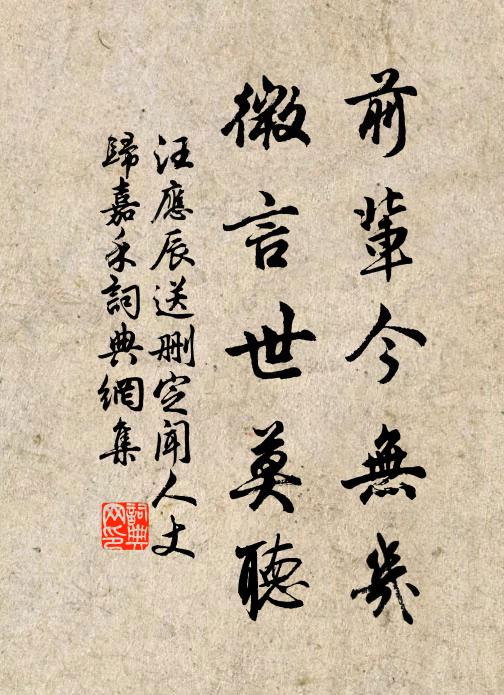 前輩今無幾
微言世莫聽
汪應辰送刪定聞人丈
歸嘉禾詞典網集
詞典
网印